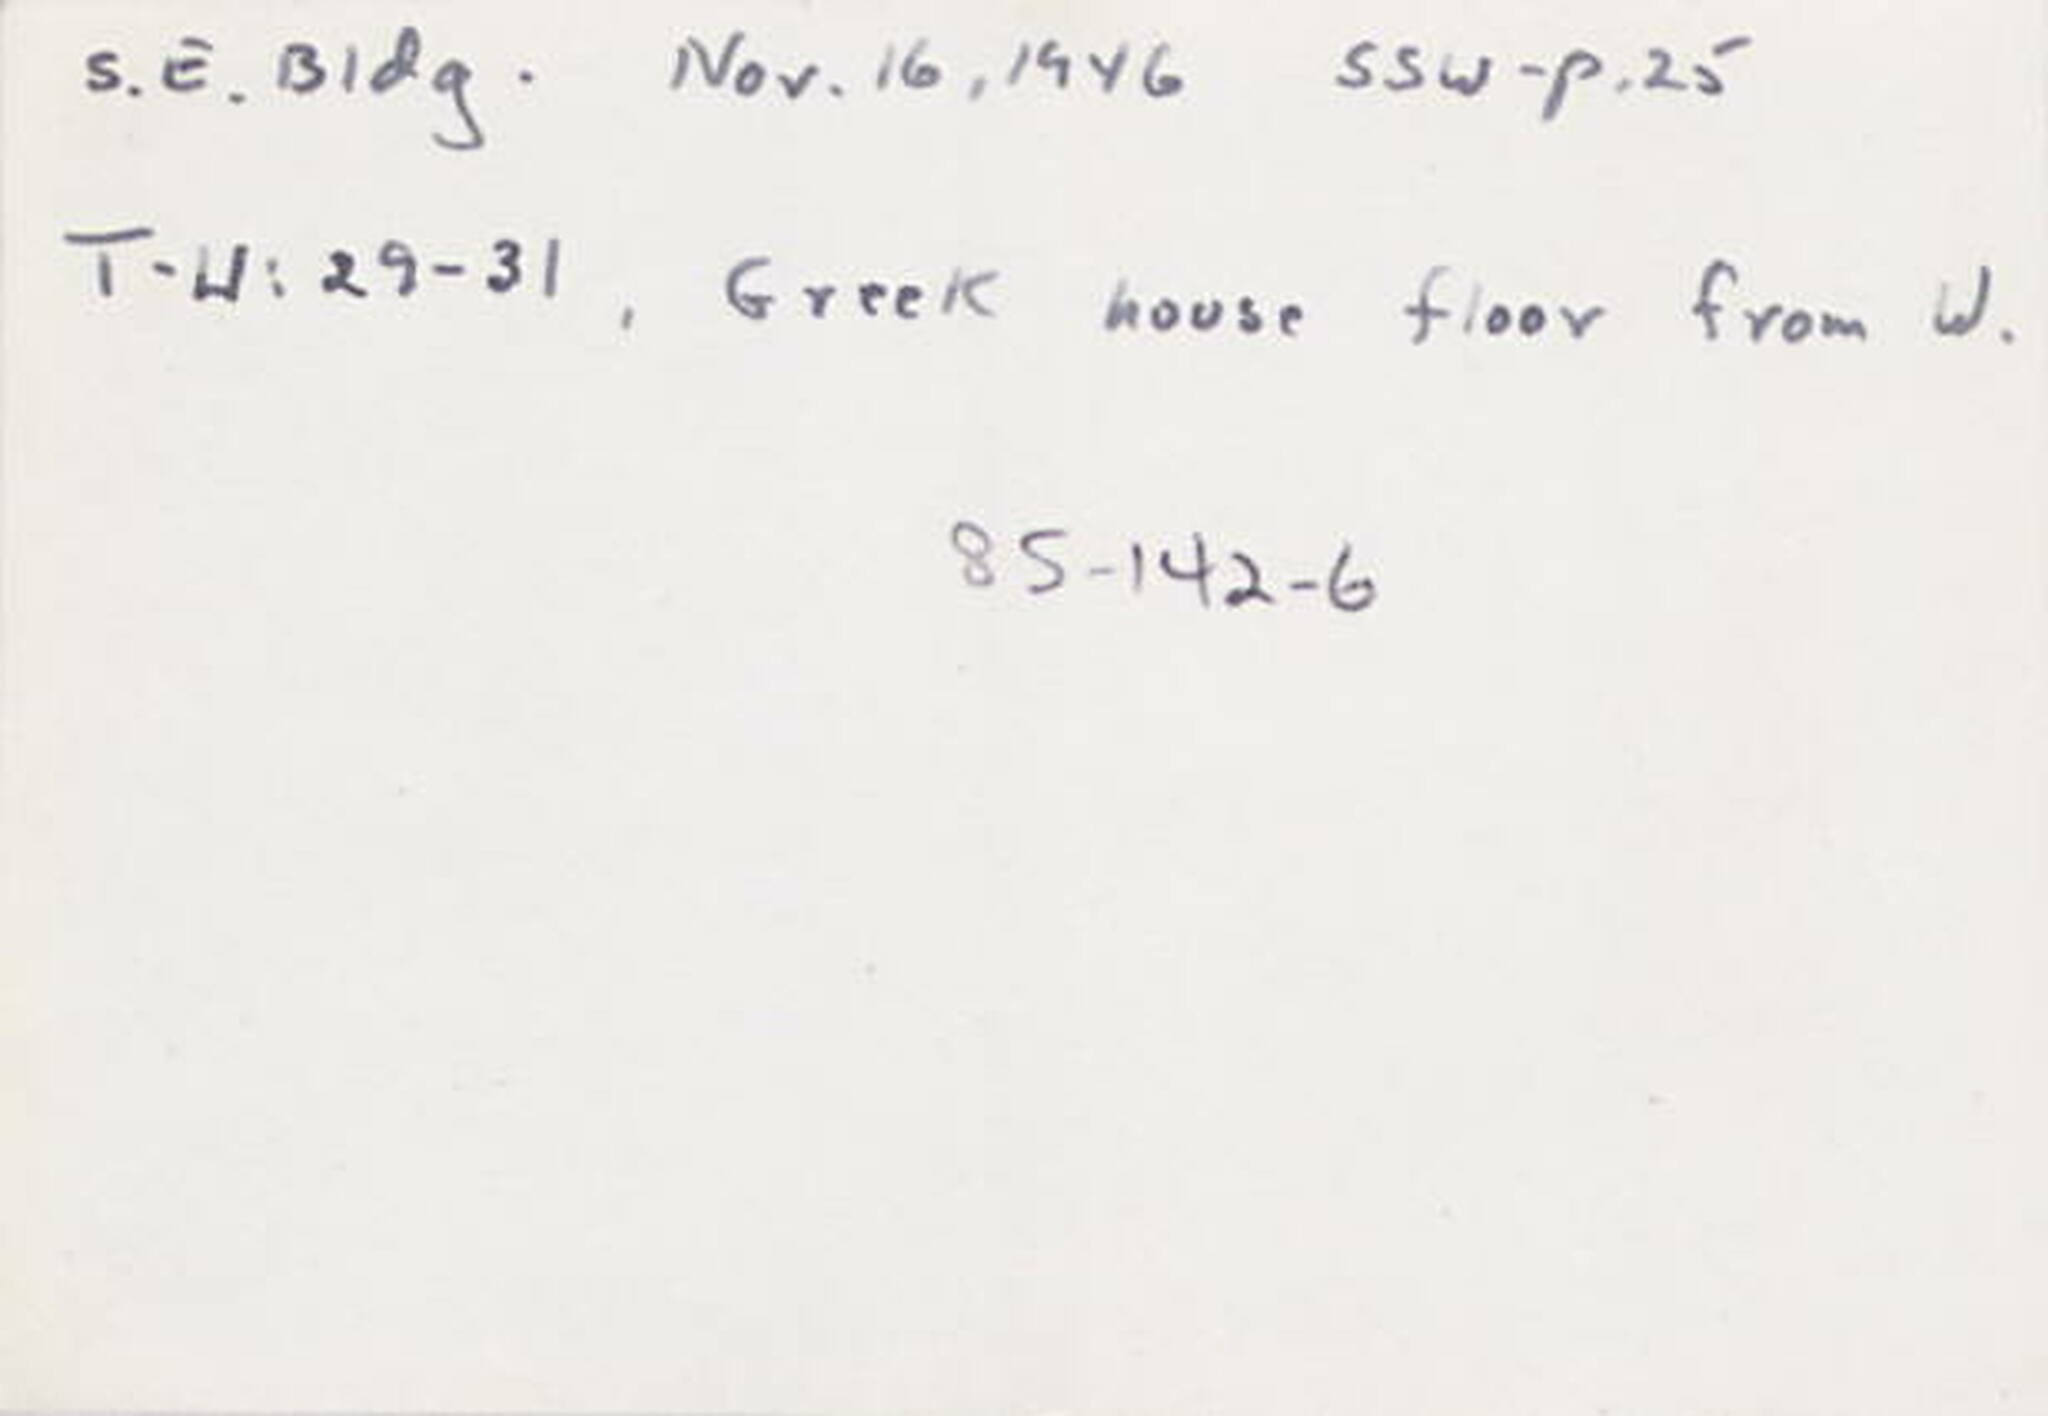 S.E. Bldg. Nov. 16, 1946 SSW-p.25
T-W: 29-31, Greek house floor from W.
85-142-6